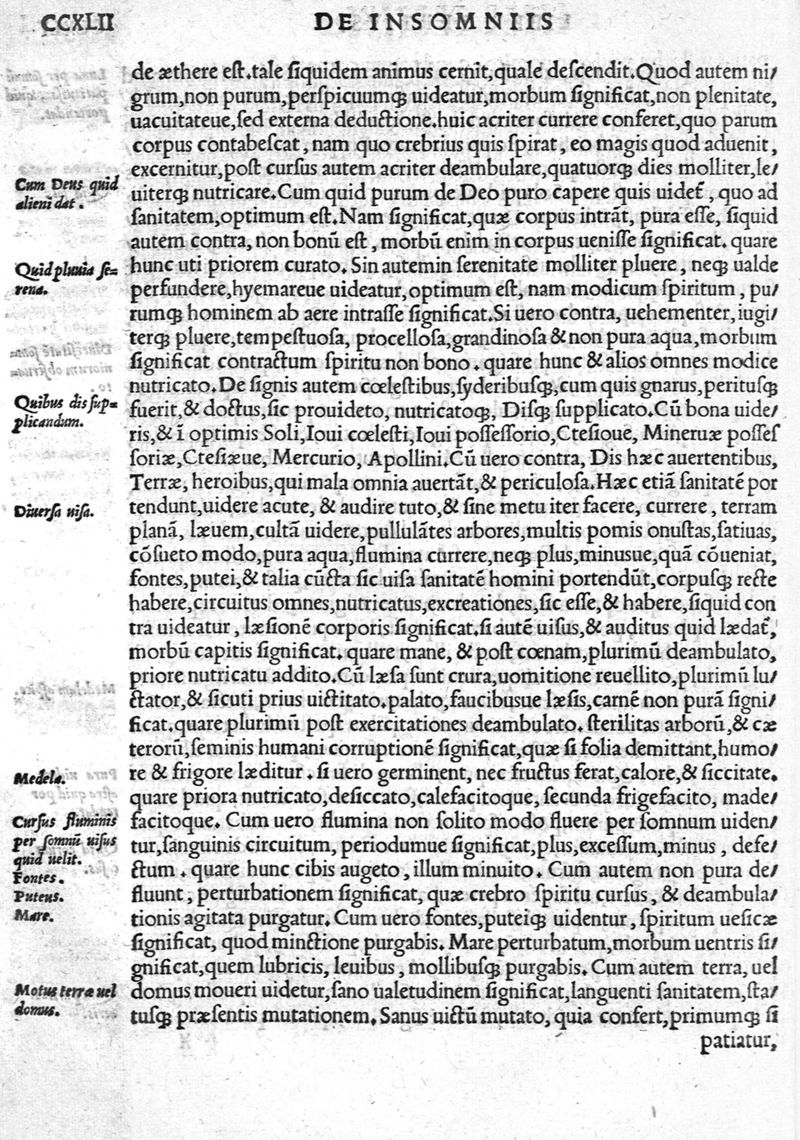 CCXLII
DE INSOMNIIS
de æthere est.tale siquidem animus cernit,quale descendit.Quod autem ni/
grum,non purum,perspicuumq; uideatur,morbum significat,non plenitate,
uacuitateue,sed externa deductione.huic acriter currere conferet,quo parum
corpus contabescat, nam quo crebrius quis spirat, eo magis quod aduenit,
excernitur,post cursus autem acriter deambulare,quatuorq; dies molliter,le/
Cum Deus quid
alieni dat.
uiterq; nutricare.Cum quid purum de Deo puro capere quis uidet̃, quo ad
sanitatem,optimum est.Nam significat,quæ corpus intrāt, pura esse, siquid
autem contra, non bonū est, morbū enim in corpus uenisse significat. quare
Quid pluuia se=
rena.
hunc uti priorem curato. Sin autem in serenitate molliter pluere, neq; ualde
perfundere,hyemareue uideatur,optimum est, nam modicum spiritum, pu/
rumq; hominem ab aere intrasse significat.Si uero contra, uehementer,iugi/
terq; pluere,tempestuosa, procellosa,grandinosa & non pura aqua,morbum
significat contractum spiritu non bono. quare hunc & alios omnes modice
nutricato.De signis autem cœlestibus,syderibusq;,cum quis gnarus,peritusq;
Quibus dis sup=
plicandum.
fuerit,& doctus,sic prouideto, nutricatoq;, Disq; supplicato.Cū bona uide/
ris,& ĩ optimis Soli,Ioui cœlesti,Ioui possessorio,Ctesioue, Mineruæ posses
soriæ,Ctesiæue, Mercurio, Apollini.Cū uero contra, Dis hæc auertentibus,
Terræ, heroibus,qui mala omnia auertāt,& periculosa.Hæc etiā sanitatē por
Diuersa uisa.
tendunt,uidere acute, & audire tuto,& sine metu iter facere, currere, terram
planā, læuem,cultā uidere,pullulātes arbores,multis pomis onustas,satiuas,
cōsueto modo,pura aqua,flumina currere,neq; plus,minusue,quā cōueniat,
fontes,putei,& talia cūcta sic uisa sanitatē homini portendūt,corpusq; recte
habere,circuitus omnes,nutricatus,excreationes,sic esse,& habere,siquid con
tra uideatur, læsionē corporis significat.si autē uisus,& auditus quid lædat̃,
morbū capitis significat. quare mane, & post cœnam,plurimū deambulato,
priore nutricatu addito.Cū læsa sunt crura,uomitione reuellito,plurimū lu/
ctator,& sicuti prius uictitato.palato,faucibusue læsis,carnē non purā signi/
ficat.quare plurimū post exercitationes deambulato. sterilitas arborū,& cæ
terorū,seminis humani corruptionē significat,quæ si folia demittant,humo/
Medela.
re & frigore læditur. si uero germinent, nec fructus ferat,calore,& siccitate.
quare priora nutricato,desiccato,calefacitoque, secunda frigefacito, made/
Cursus fluminis
per somnū uisus
quid uelit.
facitoque. Cum uero flumina non solito modo fluere per somnum uiden/
tur,sanguinis circuitum, periodumue significat,plus,excessum,minus, defe/
ctum. quare hunc cibis augeto, illum minuito. Cum autem non pura de/
Fontes.
Puteus.
fluunt, perturbationem significat, quæ crebro spiritu cursus, & deambula/
Mare.
tionis agitata purgatur. Cum uero fontes,puteiq; uidentur, spiritum uesicæ
significat, quod minctione purgabis. Mare perturbatum,morbum uentris si/
gnificat,quem lubricis, leuibus, mollibusq; purgabis. Cum autem terra, uel
Motus terræ uel
domus.
domus moueri uidetur,sano ualetudinem significat,languenti sanitatem,sta/
tusq; præsentis mutationem. Sanus uictū mutato, quia confert,primumq; si
patiatur,